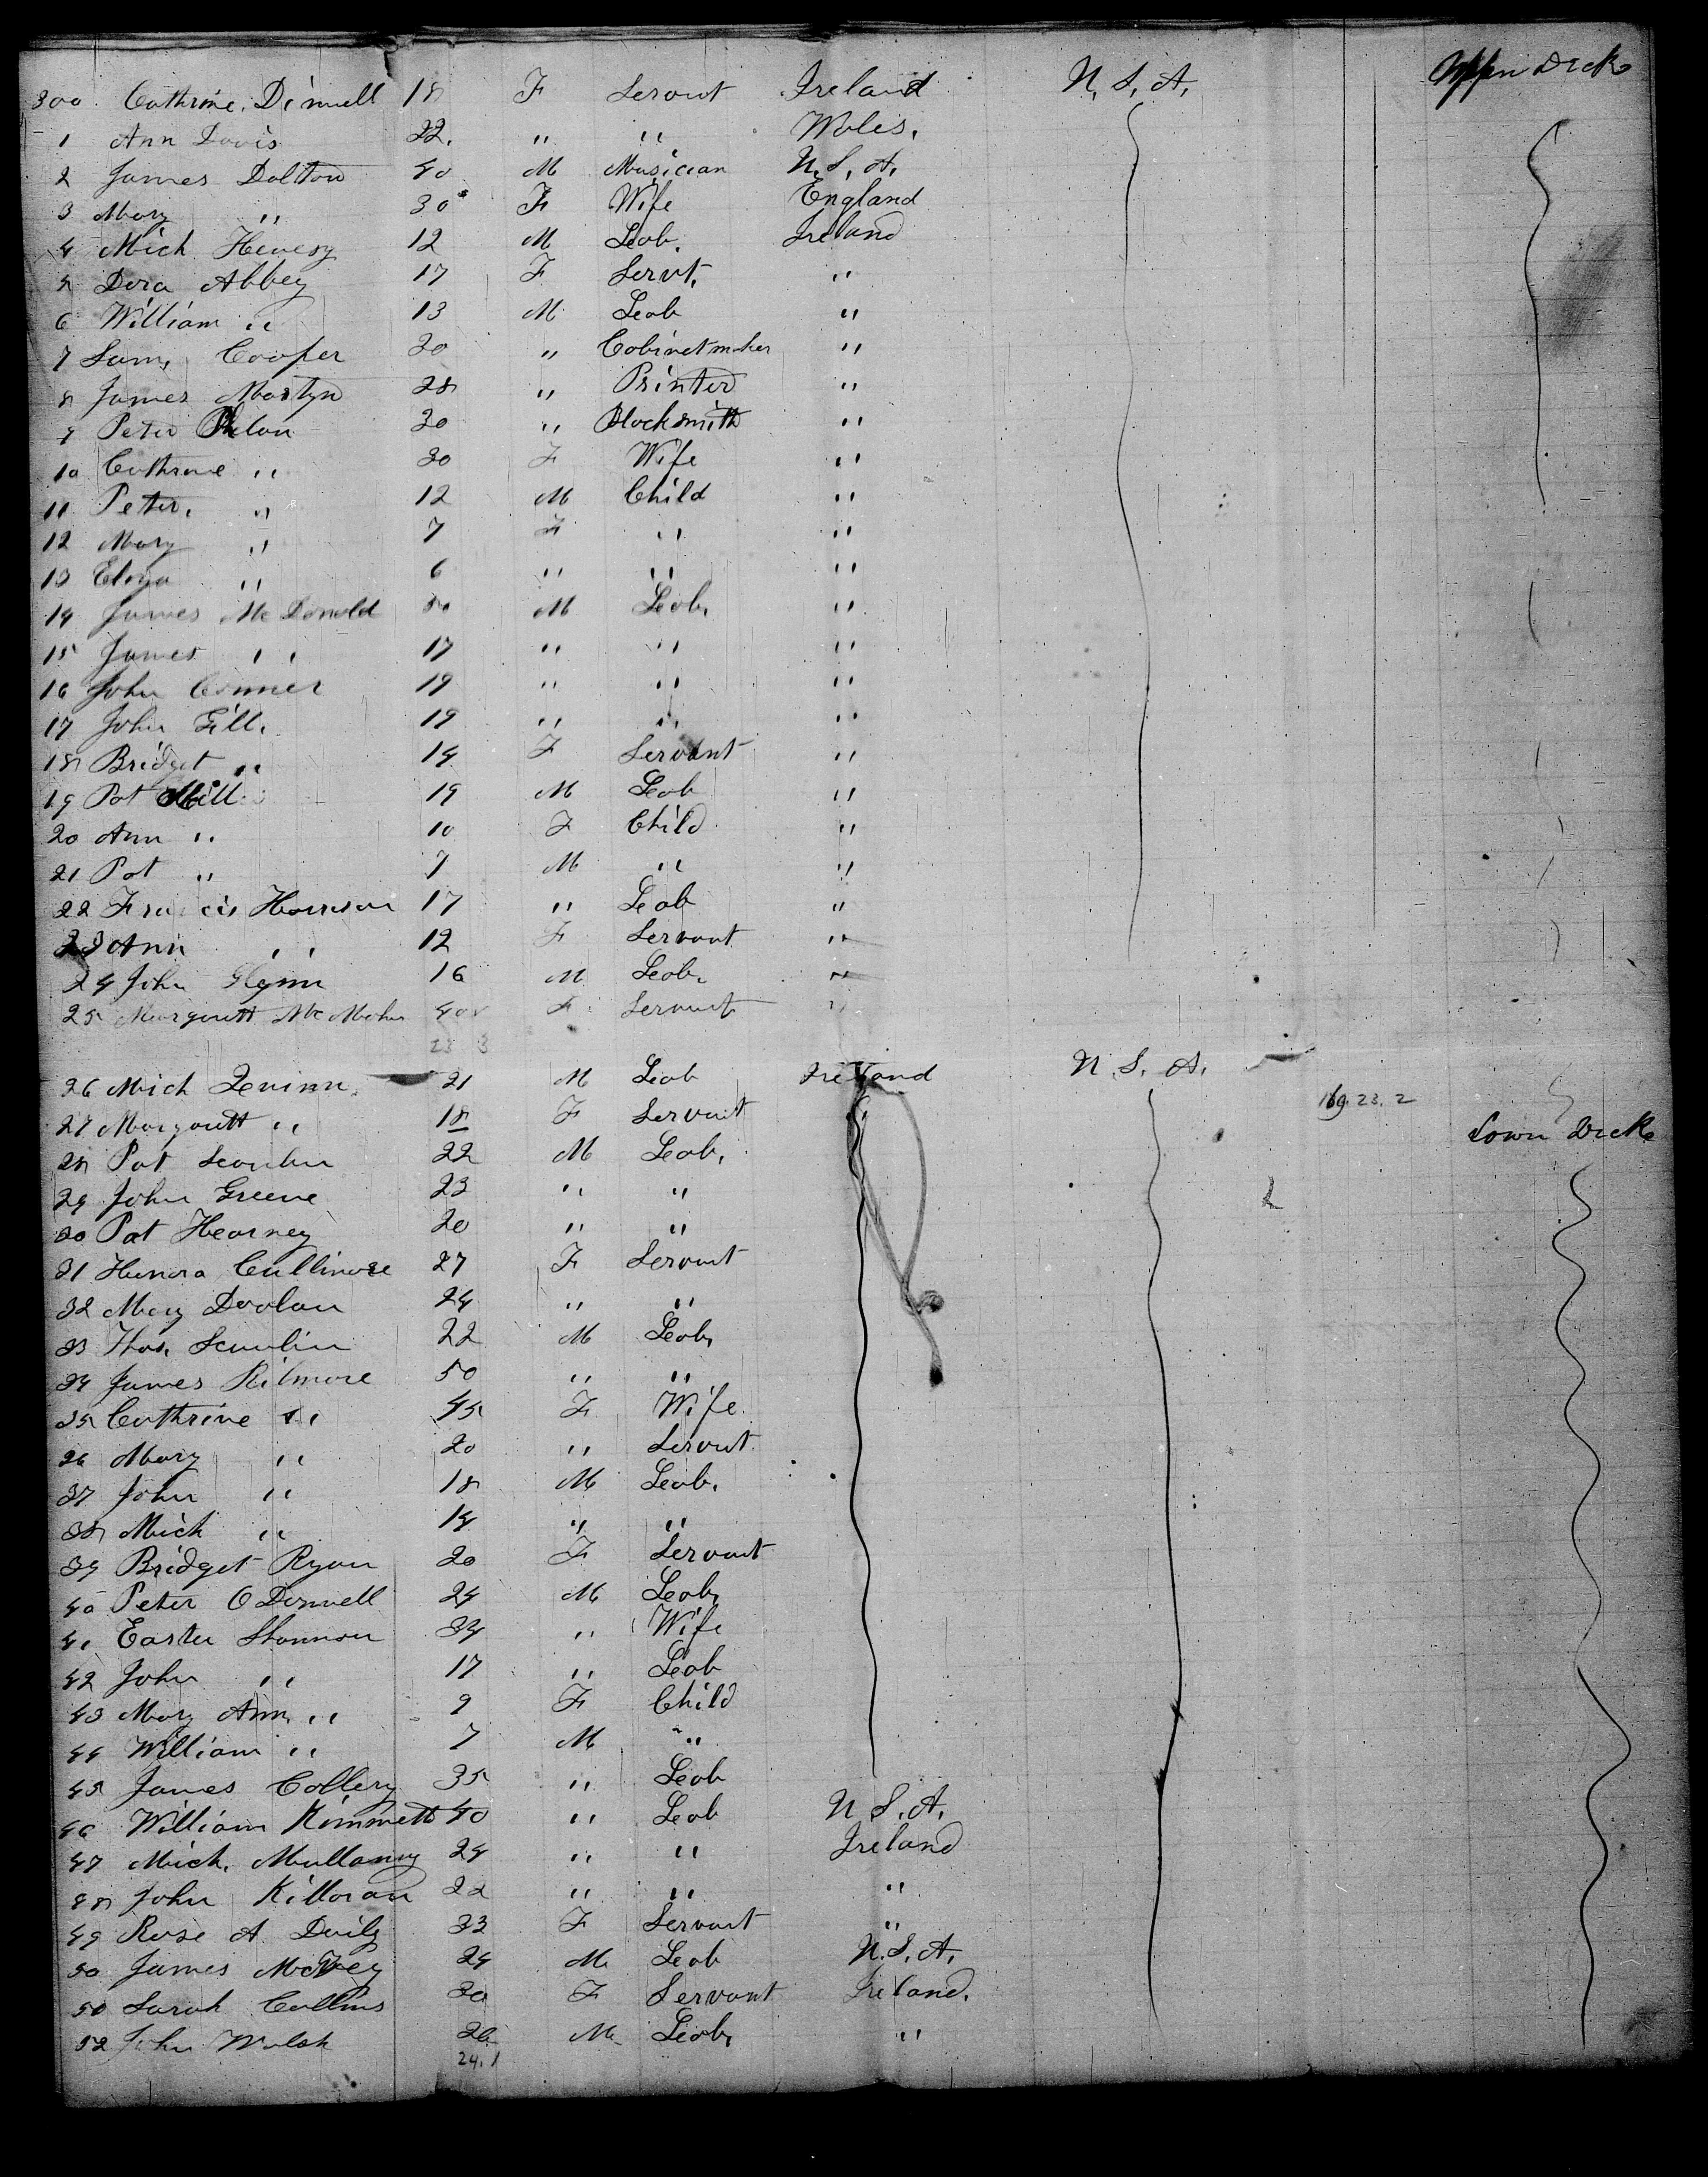 300 Cathrine Dinnell 18 F Servant Ireland U. S. A. Upper Deck
1 Ann Davis 22. " " Wales.
2 James Dalton 40 M Musician U. S. A.
3 Mary " 30 F Wife England
4 Mich Hevesy 12 M Lab. Ireland
5 Dora Abbey 17 F Servt. "
6 William " 13 M Lab "
7 Sam. Cooper 20 " Cabinetmaker "
8 James Martyn 28 " Printer "
9 Peter Phelan 30 " Blacksmith "
10 Cathrine " 30 F Wife "
11 Peter. " 12 M Child "
12 Mary " 7 F " "
13 Eliza " 6 " " "
14 James McDonald 50 M Lab. "
15 James " 17 " " "
16 John Conner 19 " " "
17 John Gill. 19 " " "
18 Bridget " 14 F Servant "
19 Pat Mill 19 M Lab "
20 Ann " 10 F Child "
21 Pat " 7 M " "
22 Francis Harrison 17 " Lab "
23 Ann " 12 F Servant "
24 John Glynn 16 M Lab. "
25 Margarett McMahn 40 F Servant "
23 3
26 Mich Quinn 21 M Lab Ireland U. S. A.
27 Margarett " 18 F Servant 169. 23. 2
28 Pat Scanlan 22 M Lab. Lower Deck
29 John Greene 23 " "
30 Pat Kearney 20 " "
31 Hanora Cullinare 27 F Servant
32 Mary Doolan 24 " "
33 Thos. Scanlin 22 M Lab.
34 James Kilmore 50 " "
35 Cathrine " 45 F Wife
36 Mary " 20 " Servant
37 John " 18 M Lab.
38 Mich " 14 " "
39 Bridget Ryan 20 F Servant
40 Peter O Donnell 24 M Lab.
41 Easter Shannon 34 " Wife
42 John " 17 " Lab
43 Mary Ann " 9 F Child
44 William " 7 M "
45 James Collery 35 " Lab
46 William Kimmett 40 " Lab U. S. A.
47 Mich. Mullanny 24 " " Ireland
48 John Killoran 22 " " "
49 Rose A Daily 33 F Servant "
50 James McVey 24 M Lab U. S. A.
50 Sarah Collins 30 F Servant Ireland.
52 John Walsh 26 M Lab. "
24. 1